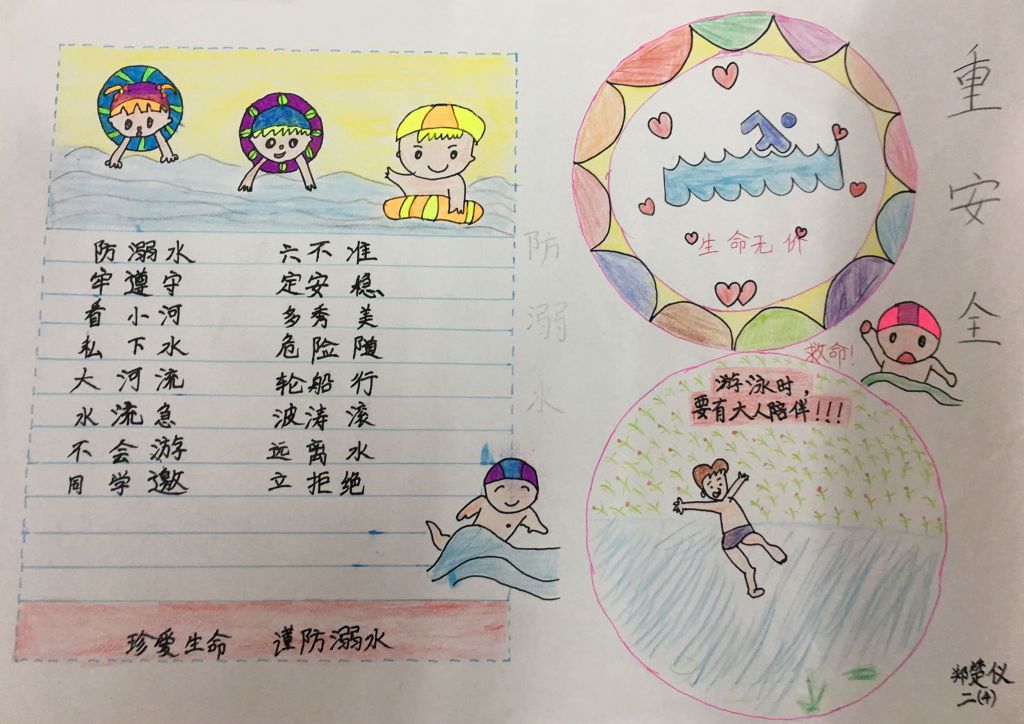 防溺水 六不准
牢遵守 定安稳
看小河 多秀美
私下水 危险随
大河流 轮船行
水流急 波涛滚
不会游 远离水
同学邀 立拒绝
珍爱生命 谨防溺水
防溺水
重安全
生命无价
救命!
游泳时，
要有大人陪伴!!!
郑楚仪
二(4)